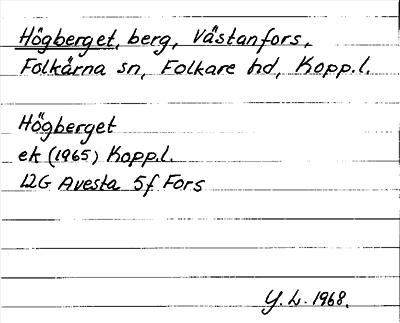 Högberget, berg, Västanfors,
Folkårna sn, Folkare hd, Kopp.l.
Högberget
ek (1965) Kopp.l.
12G Avesta 5f Fors
Y. L. 1968.